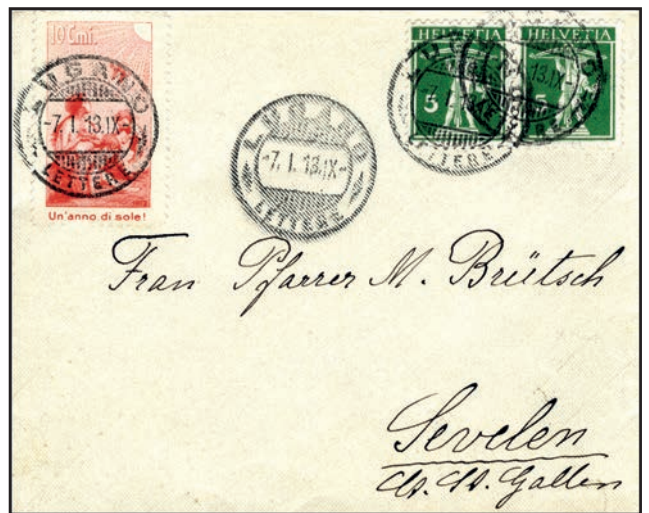 10 Cmi.
LUGANO
-7. I. 13.IX-
LETTERE
Un'anno di sole!
LUGANO
-7. I. 13.IX-
LETTERE
HELVETIA HELVETIA
5 5
LUGANO
LETTERE
13.IX-
Frau Pfarrer M. Brütsch
Sevelen
Ct. St. Gallen